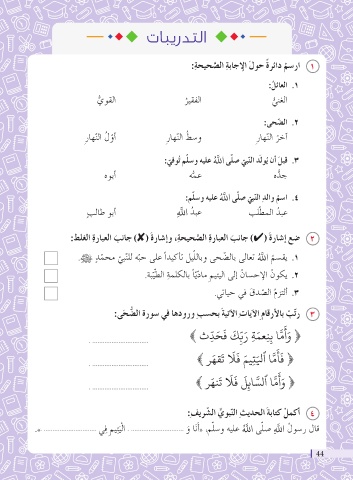 التدريبات
١ ارسمْ دائرةً حولَ الإجابةِ الصَّحيحةِ:
١. العائلُ:
الغنيُّ الفقيرُ القويُّ
٢. الضُّحى:
آخرَ النَّهارِ وسطُ النَّهارِ أوّلُ النَّهارِ
٣. قبلَ أن يُولَدَ النّبيُّ صلّى اللهُ عليه وسلّم تُوفِّيَ:
جدُّه عمُّه أبوه
٤. اسمُ والدِ النّبيِّ صلّى اللهُ عليه وسلّم:
عبدُ المطّلبِ عبدُ اللَّهِ أبو طالبٍ
٢ ضع إشارةَ (✔) جانبَ العبارةِ الصَّحيحةِ، وإشارةَ (✘) جانبَ العبارةِ الغلطِ:
١. يقسمُ اللهُ تعالى بالضّحى وباللّيلِ تأكيداً على حبِّه لنبيِّهِ محمّدٍ ﷺ.
٢. يكونُ الإحسانُ إلى اليتيمِ مادّيّاً بالكلمةِ الطّيّبةِ.
٣. ألتزمُ الصّدقَ في حياتي.
٣ رتّبْ بالأرقامِ الآياتِ الآتيةَ بحسبِ ورودِها في سورة الضُّحى:
﴿ وَأَمَّا بِنِعمَةِ رَبِّكَ فَحَدِّث ﴾ ........................
﴿ فَأَمَّا ٱليَتِيمَ فَلَا تَقهَر ﴾ ........................
﴿ وَأَمَّا ٱلسَّآئِلَ فَلَا تَنهَر ﴾ ........................
٤ أكملْ كتابةَ الحديثِ النّبويِّ الشّريفِ:
قالَ رسولُ اللَّهِ صلّى اللهُ عليه وسلّم: «أنَا وَ ........................ الْيَتِيمِ فِي ........................».
44